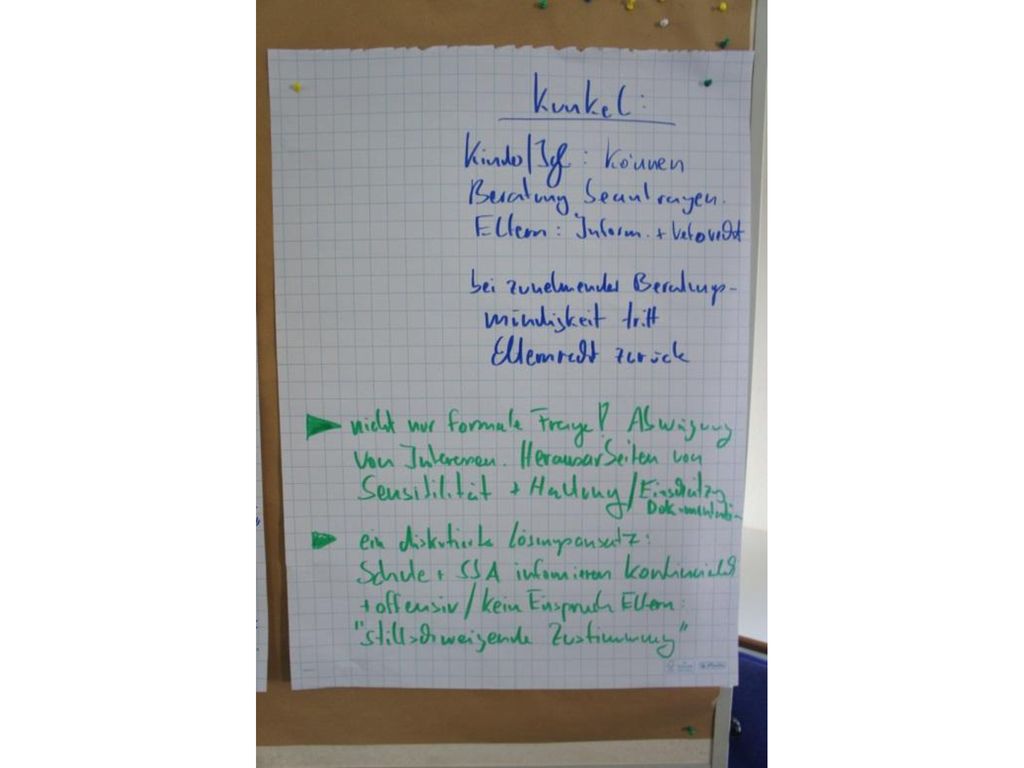 Kunkel:
Kinder/Jgl: können
Beratung beantragen.
Eltern: Inform. + Vetorecht
bei zunehmender Beratungs-
mündigkeit tritt
Elternrecht zurück
nicht nur formale Frage! Abwägung
von Interessen. Herausarbeiten von
Sensibilität + Haltung/Einschätzg
Dokumentation
ein diskutierte Lösungsansatz:
Schule + SSA informieren kontinuierlich
+ offensiv/kein Einspruch Eltern:
"stillschweigende Zustimmung"